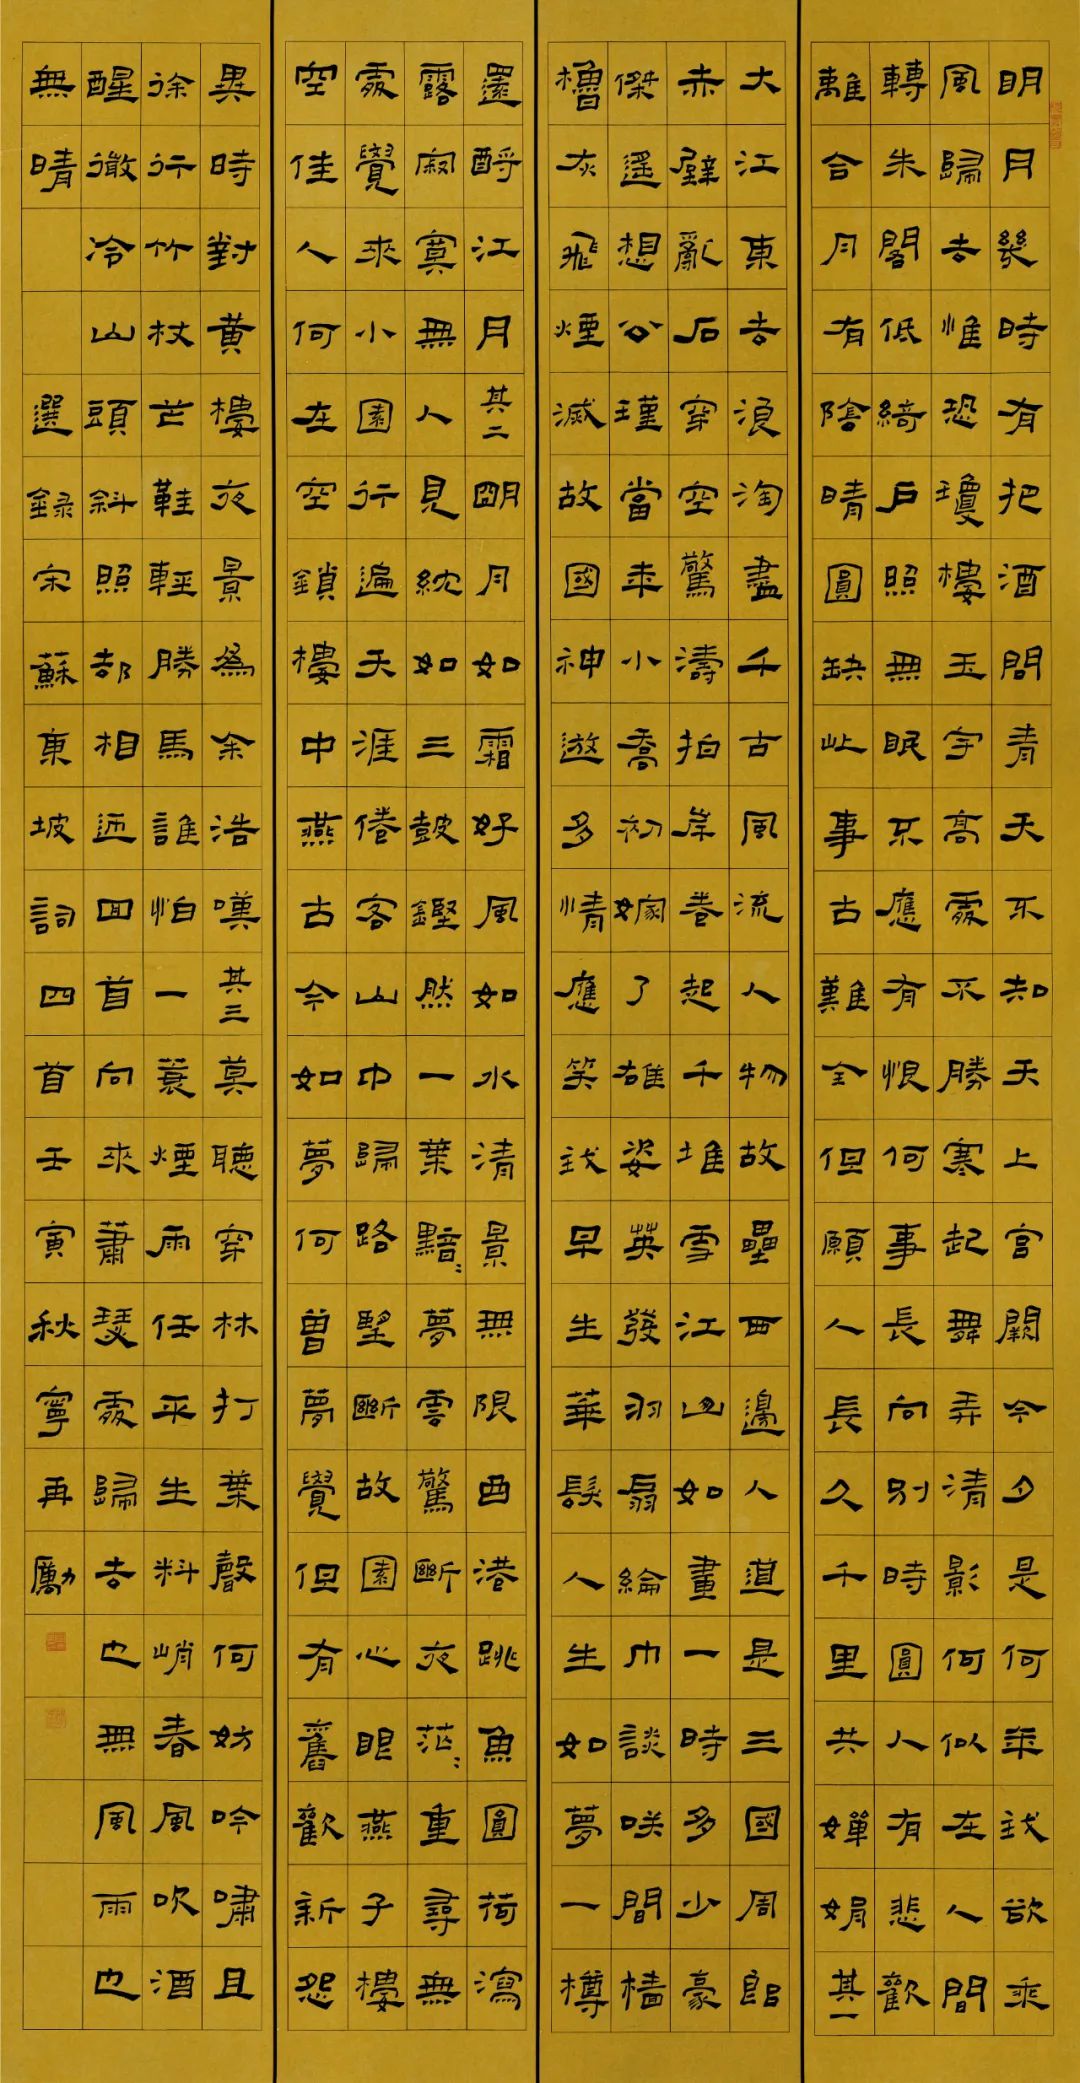 明月幾時有把酒問青天不知天上宮闕今夕是何年我欲乘
風歸去惟恐瓊樓玉宇高處不勝寒起舞弄清影何似在人間
轉朱閣低綺戶照無眠不應有恨何事長向別時圓人有悲歡
離合月有陰晴圓缺此事古難全但願人長久千里共嬋娟其一
大江東去浪淘盡千古風流人物故壘西邊人道是三國周郎
赤壁亂石穿空驚濤拍岸卷起千堆雪江山如畫一時多少豪
傑遙想公瑾當年小喬初嫁了雄姿英發羽扇綸巾談咲間檣
櫓灰飛煙滅故國神遊多情應笑我早生華髮人生如夢一樽
還酹江月其二明月如霜好風如水清景無限曲港跳魚圓荷瀉
露寂寞無人見紞如三鼓鏗然一葉黯〻夢雲驚斷夜茫〻重尋無
處覺來小園行遍天涯倦客山中歸路望斷故園心眼燕子樓
空佳人何在空鎖樓中燕古今如夢何曾夢覺但有舊歡新怨
異時對黃樓夜景為余浩嘆其三莫聽穿林打葉聲何妨吟嘯且
徐行竹杖芒鞋輕勝馬誰怕一蓑煙雨任平生料峭春風吹酒
醒微冷山頭斜照卻相迎回首向來蕭瑟處歸去也無風雨也
無晴 選錄宋蘇東坡詞四首壬寅秋寧再勵